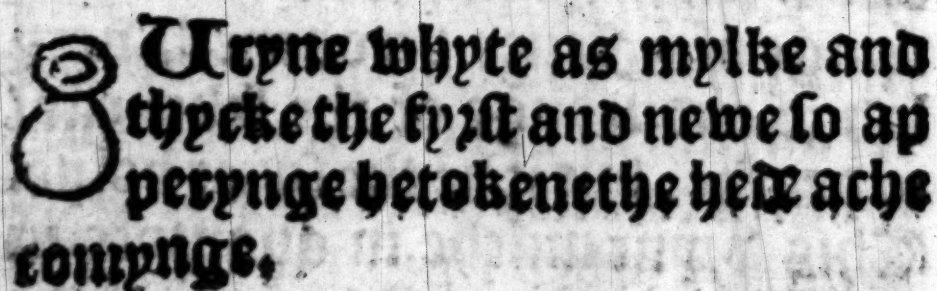 Uryne whyte as mylke and
thycke the fyrſt and newe ſo ap
perynge betokenethe hede ache
comynge.